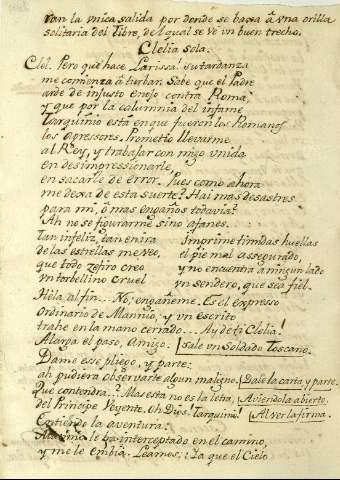 van la unica salida por donde se baxa à una orilla
solitaria del Tibre, del qual se vé un buen trecho.
Clelia sola.
Clel. Pero què hace Larissa! su tardanza
me comienza à turbar. Sabe que el Padre
arde de injusto enojo contra Roma;
y que por la calumnia del infame
Tarquinio està en que fueron los Romanos
los agressores. Prometio llevarme
al Rey, y trabajar con migo unida
en desimpressionarle
en sacarle de error. Pues como ahora
me dexa de esta suerte? Hai mas desastres
para mi, ò mas engaños todavia?
Ah no se figurarme sino afanes.
Tan infeliz, tan enira
de las estrellas me veo,
que todo zefiro creo
un torbellino cruel
Imprime timidas huellas
el pie mal assegurado,
y no encuentra à ningun lado
un sendero, que sea fiel.
Hela al fin... No; engañeme. Es el expresso
Ordinario de Mannio, y un escrito
trahe en la mano cerrado... Ay de ti Clelia!
Alarga el paso, Amigo. Sale un Soldado Toscano.
Dame esse pliego, y parte:
ah pudiera observarte algun maligno. Dale la carta y parte.
Que contendra... Mas esta no es la letra, Aviendola abierto.
del Principe Veyente. Oh Dios! Tarquinio! Al ver la firma.
Entiendo la aventura:
le ha interceptado en el camino,
y me le embia. Leamos.: Ya que el Cielo